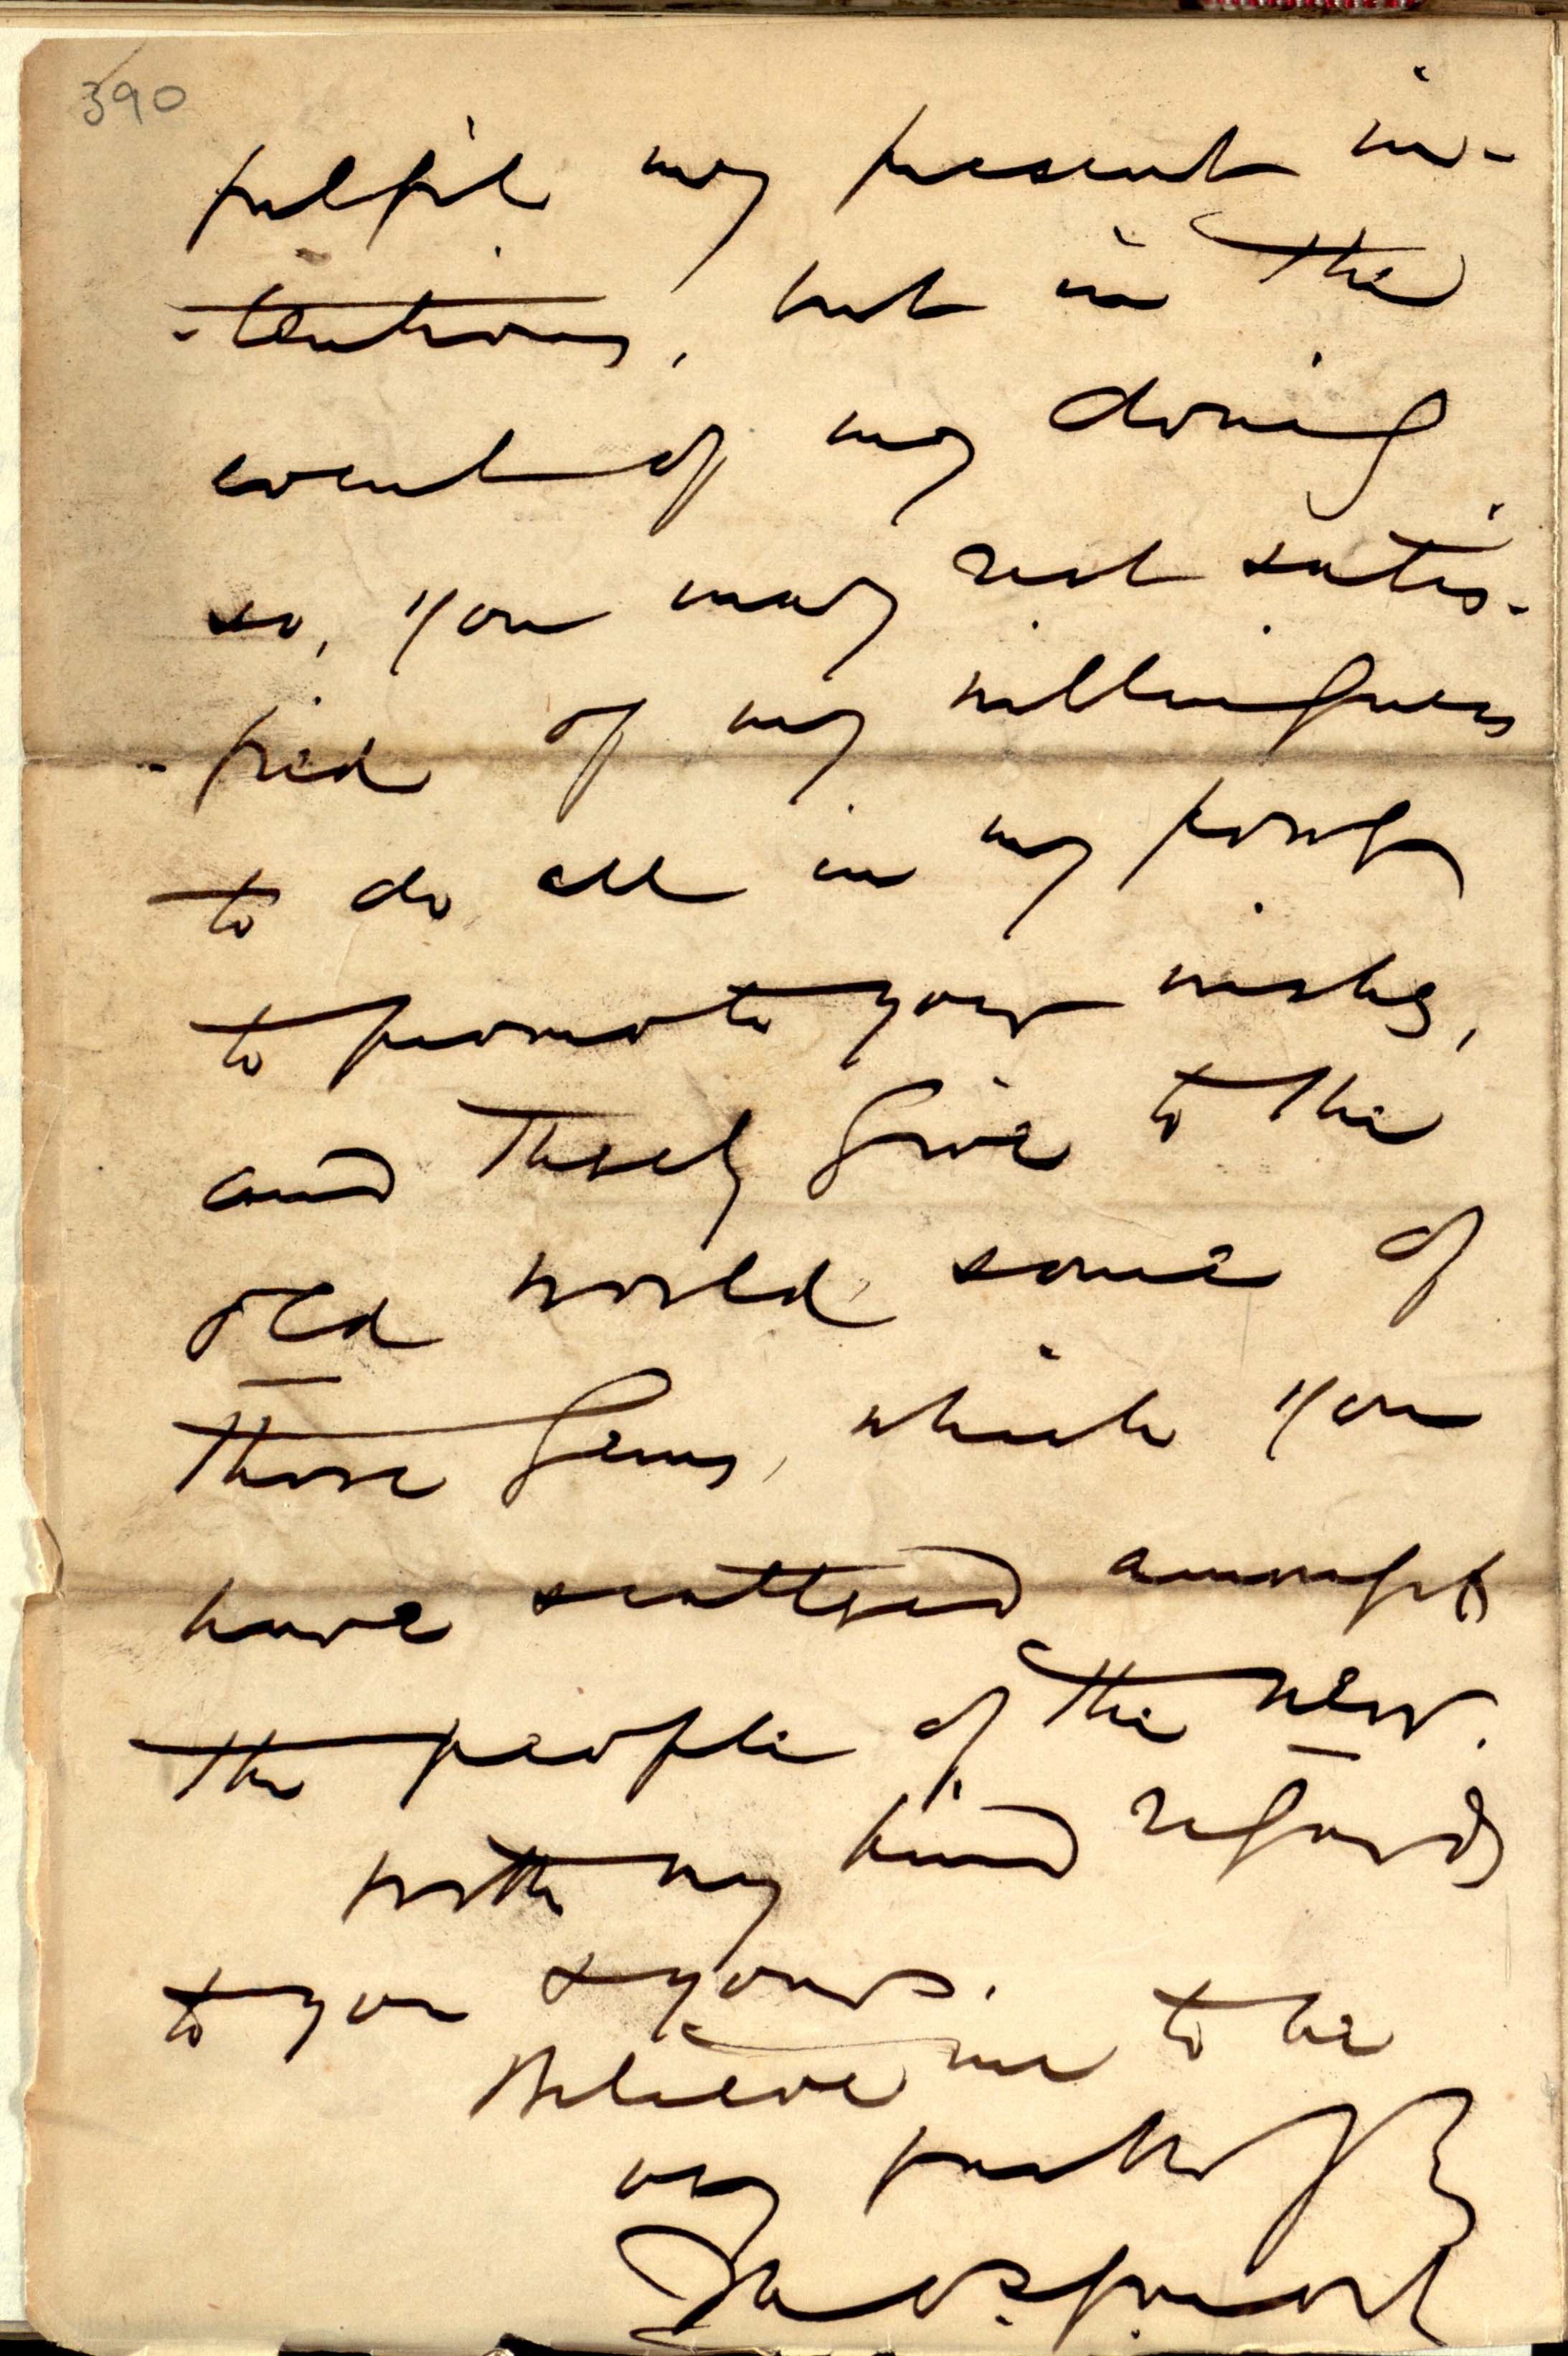 390
fulfil my present in-
-tentions, but in the
event of my doing
so, you may rest satis-
-fied of my willingness
to do all in my power
to promote your wishes,
and thereby give to the
old world some of
those gems, which you
have scattered amongst
the people of the new.
With my kind regards
to you & yours.
Believe me to be
very faithfully